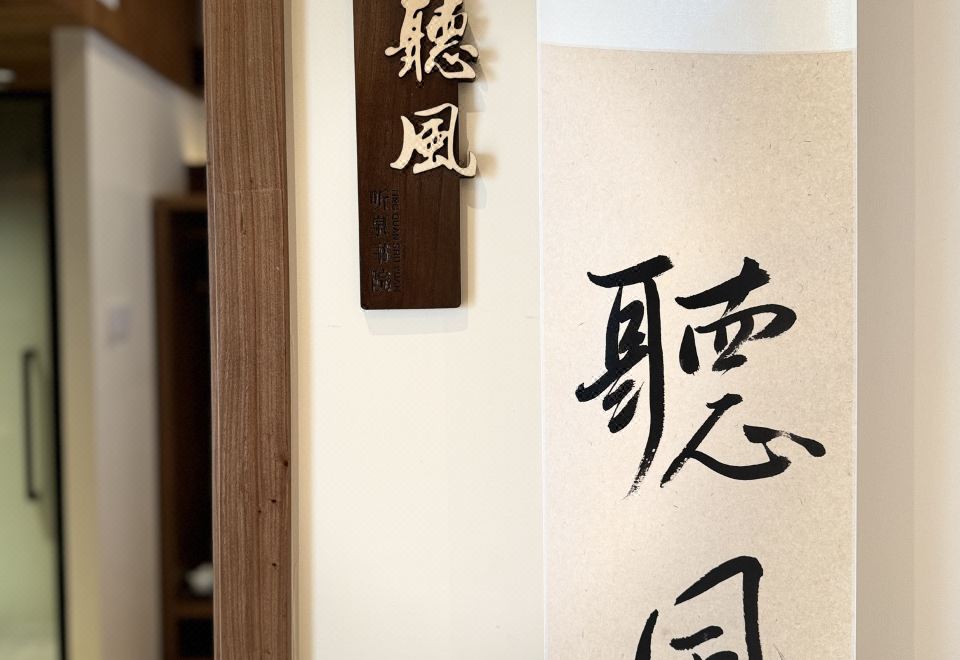 聽風
听泉书院
TING QUAN SHU YUAN
聽風